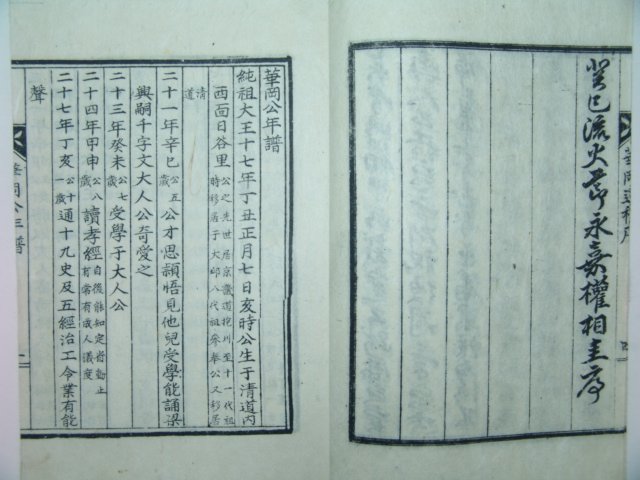 癸巳流火節永嘉權相圭序
華岡公年譜
純祖大王十七年丁丑正月七日亥時公生于清道內
西面日谷里公之先世居京畿道抱川至十一代祖
時移居于大邱八代祖參奉公又移居
清道
二十一年辛巳公五歲公才思穎悟見他兒受學能誦梁
興嗣千字文大人公奇愛之
二十三年癸未公七歲受學于大人公
二十四年甲申公八歲讀孝經自後能知定省動止
有常有成人儀度
二十七年丁亥公十一歲通十九史及五經治工令業有能
聲
華岡公年譜
一